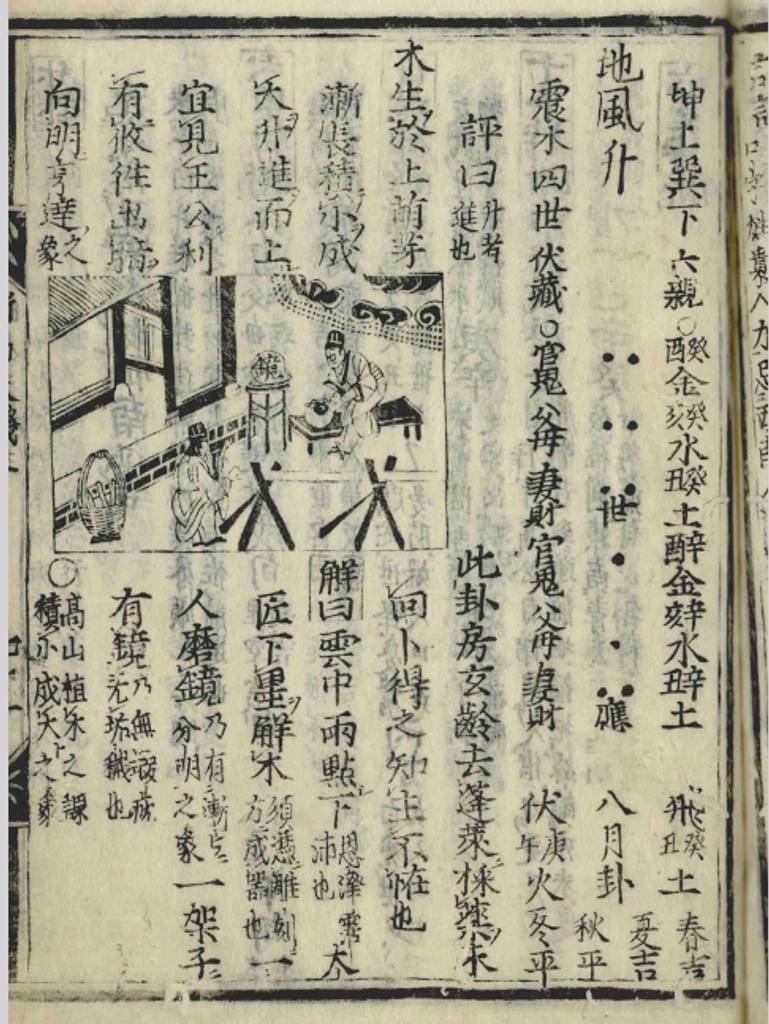 坤上巽下 六親○癸酉金癸亥水癸丑土辛酉金辛亥水辛丑土 飛癸丑土 春吉
夏吉
地風升 世 應 八月卦 秋平
震水四世伏藏○官鬼父母妻財官鬼父母妻財 伏庚午火冬平
評曰升者進也
此卦房玄齡去蓬萊採藥未
木生於土萌芽
回卜得之知主不恠也
漸長積小成
解曰雲中雨點下恩澤霈沛也 大
大升進而上
匠下墨解木須憑雕刻方成器也 一
宜見王公利
人磨鏡乃有漸漸分明之象 一架子
有攸往出暗
有鏡乃無瑕疵无垢穢也
向明亨達之象
○高山植木之課
積小成大之象
鏡